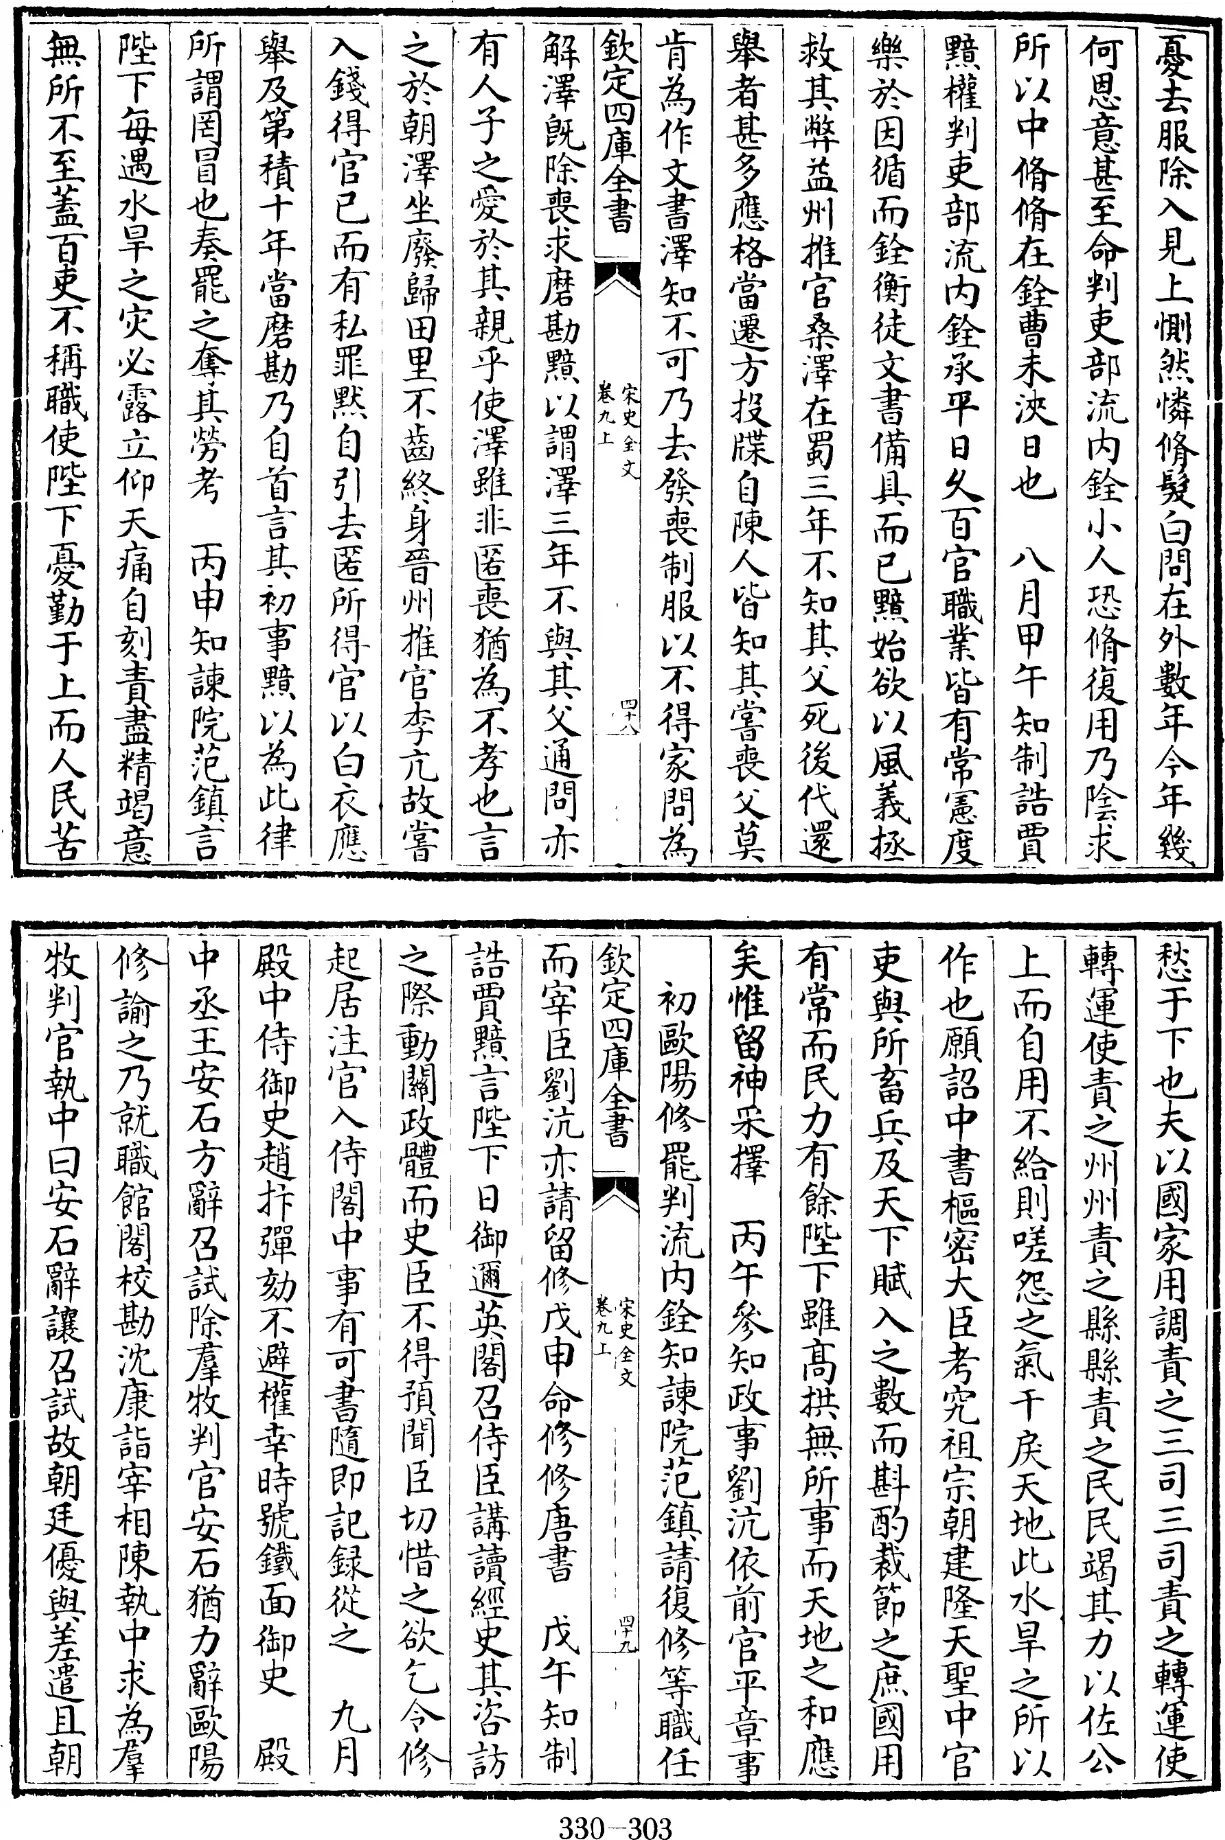 憂去服除入見上惻然憐脩髮白問在外數年今年幾
何恩意甚至命判吏部流内銓小人恐脩復用乃陰求
所以中脩脩在銓曹未浹日也　八月甲午知制誥賈
黯權判吏部流内銓承平日久百官職業皆有常憲度
樂於因循而銓衡徒文書備具而已黯始欲以風義拯
救其弊益州推官桑澤在蜀三年不知其父死後代還
舉者甚多應格當遷方投牒自陳人皆知其嘗喪父莫
肯為作文書澤知不可乃去發喪制服以不得家問為
欽定四庫全書
宋史全文
卷九上
四十八
解澤既除喪求磨勘黯以謂澤三年不與其父通問亦
有人子之愛於其親乎使澤雖非匿喪猶為不孝也言
之於朝澤坐廢歸田里不齒終身晉州推官李亢故嘗
入錢得官已而有私罪黙自引去匿所得官以白衣應
舉及第積十年當磨勘乃自首言其初事黯以為此律
所謂罔冒也奏罷之奪其勞考　丙申知諫院范鎮言
陛下每遇水旱之灾必露立仰天痛自刻責盡精竭意
無所不至蓋百吏不稱職使陛下憂勤于上而人民苦
愁于下也夫以國家用調責之三司三司責之轉運使
轉運使責之州州責之縣縣責之民民竭其力以佐公
上而自用不給則嗟怨之氣干戾天地此水旱之所以
作也願詔中書樞密大臣考究祖宗朝建隆天聖中官
吏與所畜兵及天下賦入之數而斟酌裁節之庶國用
有常而民力有餘陛下雖高拱無所事而天地之和應
矣惟留神采擇　丙午參知政事劉沆依前官平章事
初歐陽修罷判流内銓知諫院范鎮請復修等職任
欽定四庫全書
宋史全文
卷九上
四十九
而宰臣劉沆亦請留修戊申命修修唐書　戊午知制
誥賈黯言陛下日御邇英閣召侍臣講讀經史其咨訪
之際動關政體而史臣不得預聞臣切惜之欲乞令修
起居注官入侍閣中事有可書隨即記録從之　九月
殿中侍御史趙抃彈劾不避權幸時號鐵面御史　殿
中丞王安石方辭召試除羣牧判官安石猶力辭歐陽
修諭之乃就職館閣校勘沈康詣宰相陳執中求為羣
牧判官執中曰安石辭讓召試故朝廷優與差遣且朝
330—303